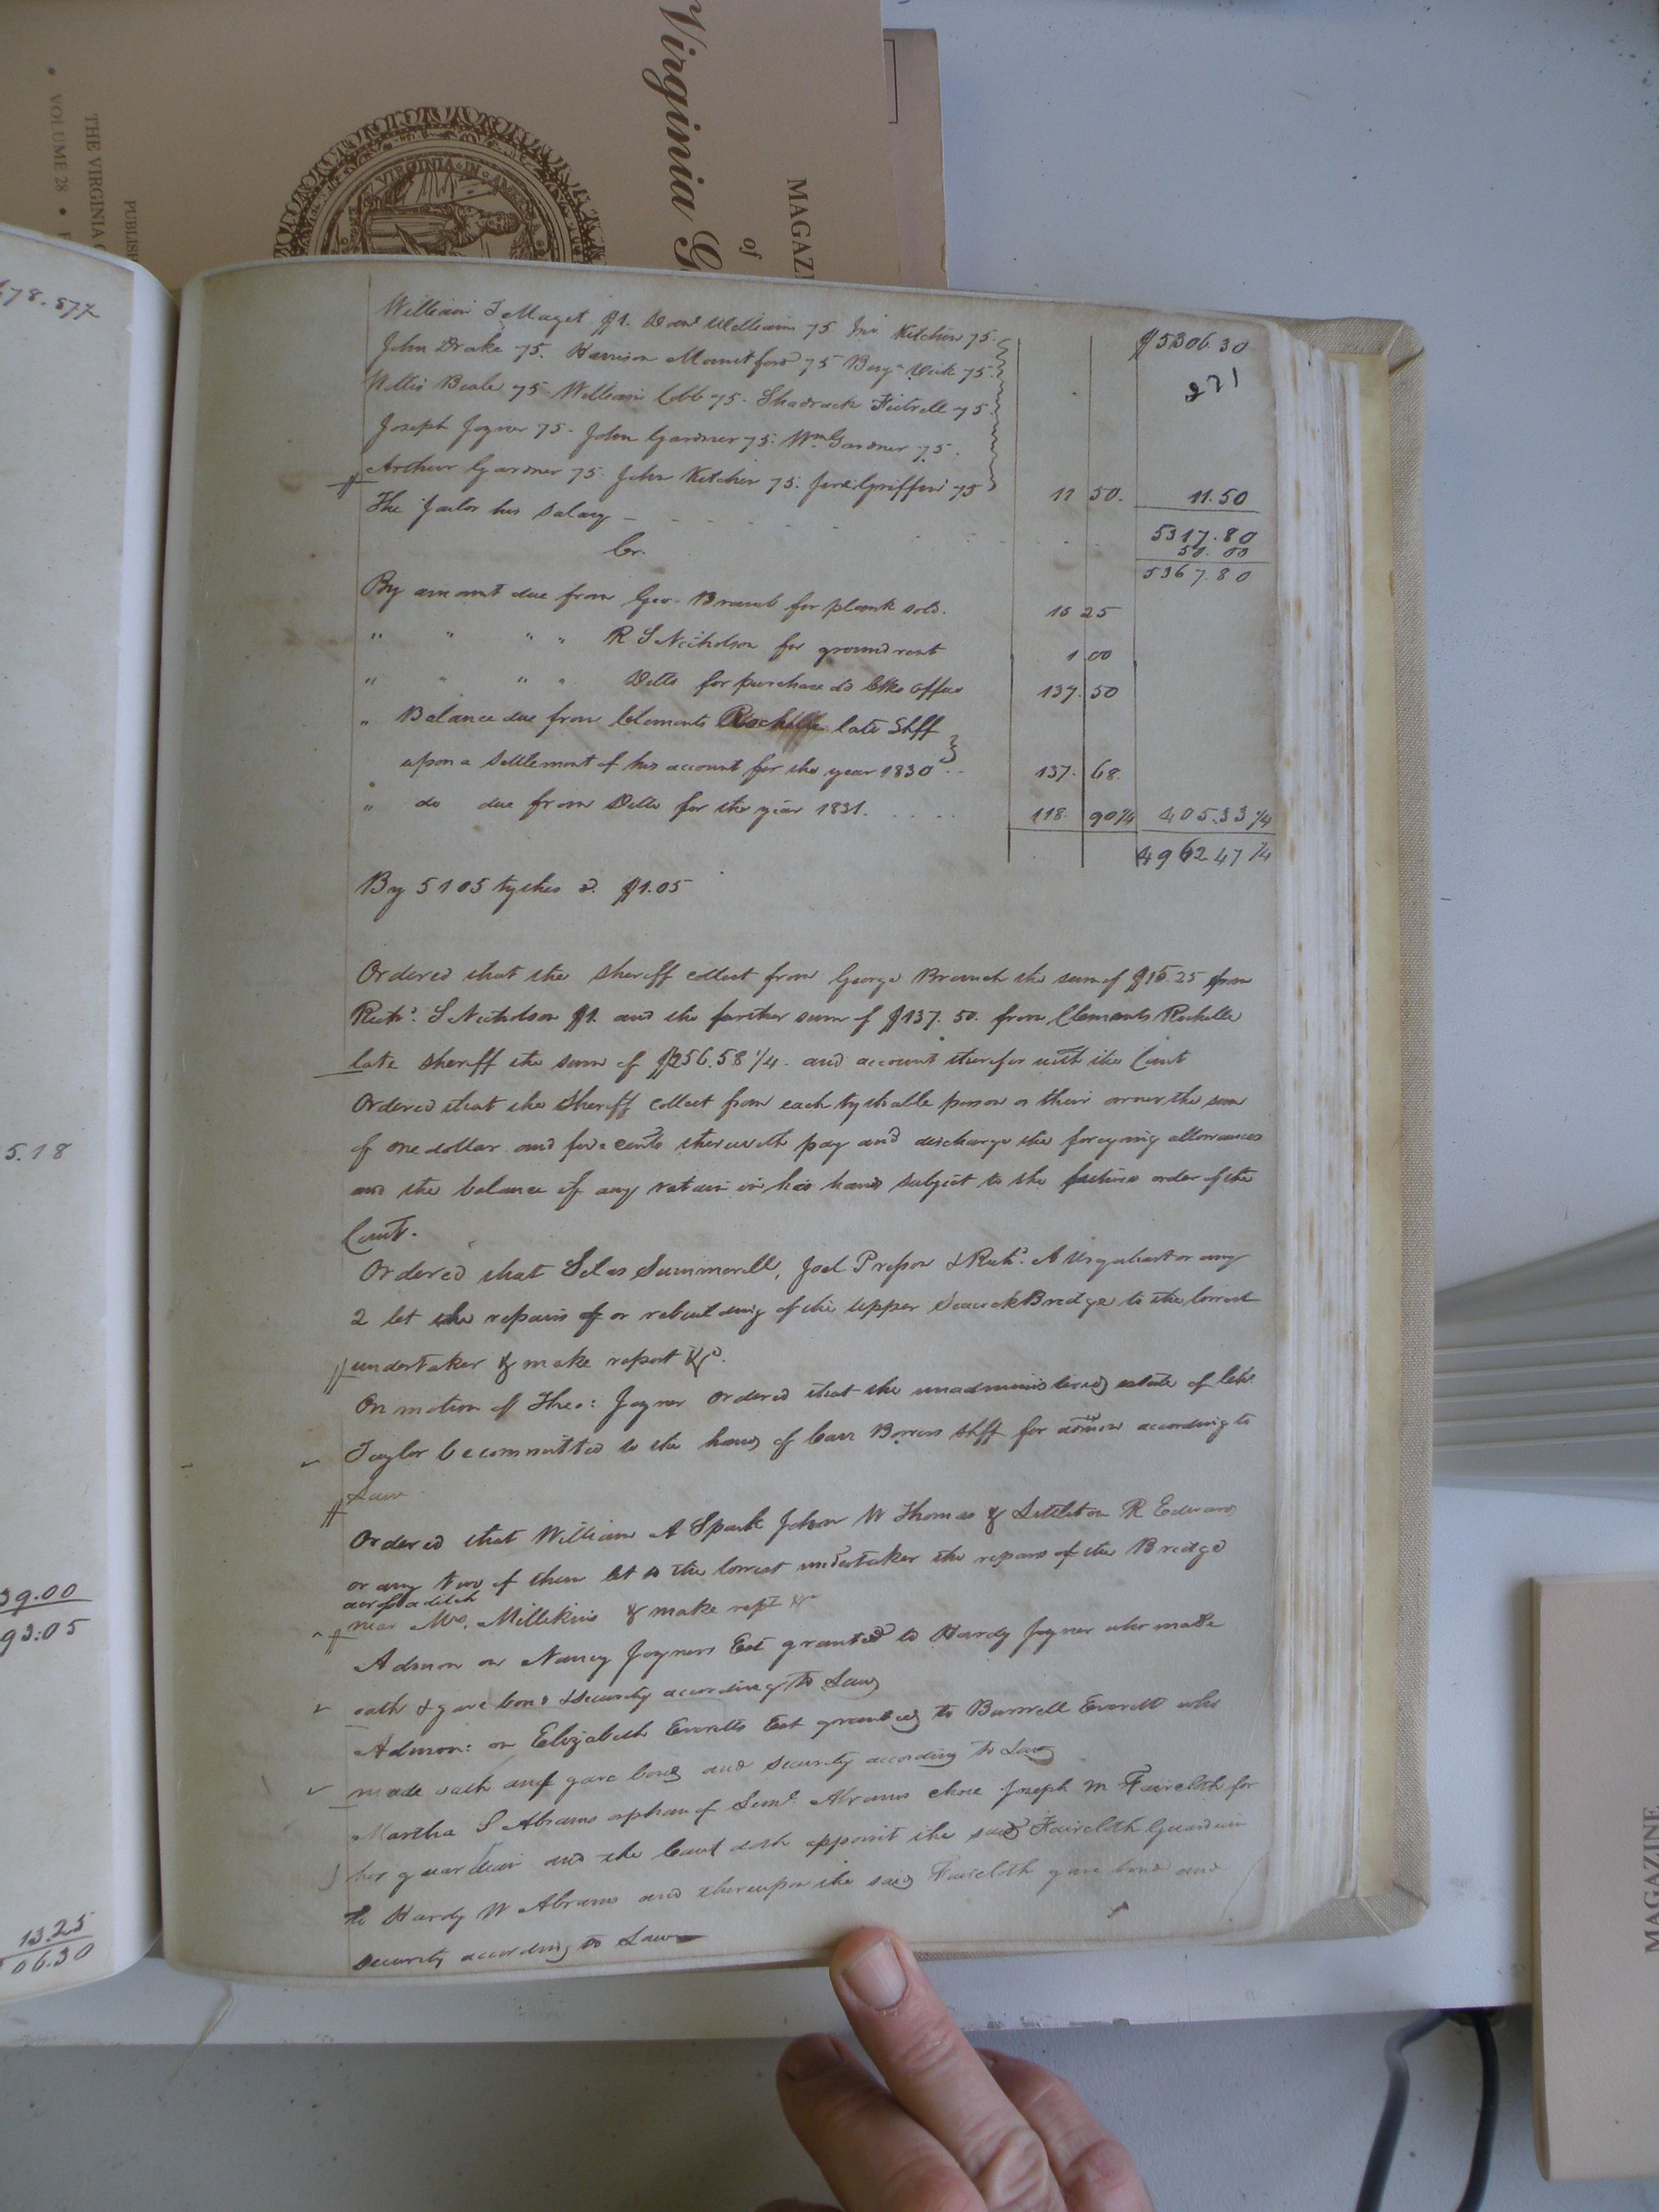 PUBLISH
THE VIRGINIA
VOLUME 28
VIRGINIA IN AM
Virginia G
MAGAZI
of
678.877
5.18
39.00
93.05
13.25
06.30
$5306.30
271
William T Maget $1. Danl Williams 75 Jno Kitchen 75.
John Drake 75. Harrison Mountford 75 Benjn Vick 75.
Willis Beale 75. William Cobb 75. Shadrack Futrell 75.
Joseph Joyner 75. John Gardner 75. Wm Gardner 75.
Arthur Gardner 75. John Kitchen 75. Griffin 75 11 50. 11.50
The Jailor his salary
5317.80
50.00
5367.80
Cr.
By amount due from Geo. Branch for plank sold. 10 25
" " " " R S Nicholson for ground rent 1 00
" " " " Ditto for purchase Clks office 137. 50
" Balance due from Clements Rochelle late Shff
upon a settlement of his account for the year 1830 137. 68.
" do due from Ditto for the year 1831. 118. 90 1/4 405.33 1/4
4962 47 1/4
By 5105 tythes @ $1.05
Ordered that the sheriff collect from George Branch the sum of $10.25 from
Richd. S Nicholson $1. and the further sum of $137. 50. from Clements Rochelle
late sheriff the sum of $256.58 1/4. and account therefor with the Court
Ordered that the Sheriff collect from each tythable person or their owner the sum
of one dollar and five cents therewith pay and discharge the foregoing allowances
and the balance if any retain in his hands subject to the future order of the
Court.
Ordered that Silas Summerell, Joel Presson & Richd. A Urquhart or any
2 let the repairs of or rebuilding of the upper Seacock Bridge to the lowest
undertaker & make report &c.
On motion of Theo: Joyner Ordered that the unadministered estate of
Taylor be committed to the hands of Carr Bowers Shff for admon according to
Law
Ordered that William A Spark John W Thomas & Littleton R Edwards
or any two of them let to the lowest undertaker the repairs of the Bridge
across a ditch
near Mrs. Millikins & make rept &c
Admon on Nancy Joyners Est granted to Hardy Joyner who made
oath & gave bond & security according to Law
Admon: on Elizabeth Everetts Est granted to Burwell Everett who
made oath and gave bond and security according to Law
Martha S Abrams orphan of Leml. Abrams chose Joseph M Faircloth for
her guardian and the Court doth appoint the said Faircloth Guardian
to Hardy W Abrams and thereupon the said Faircloth gave bond and
security according to Law
MAGAZINE